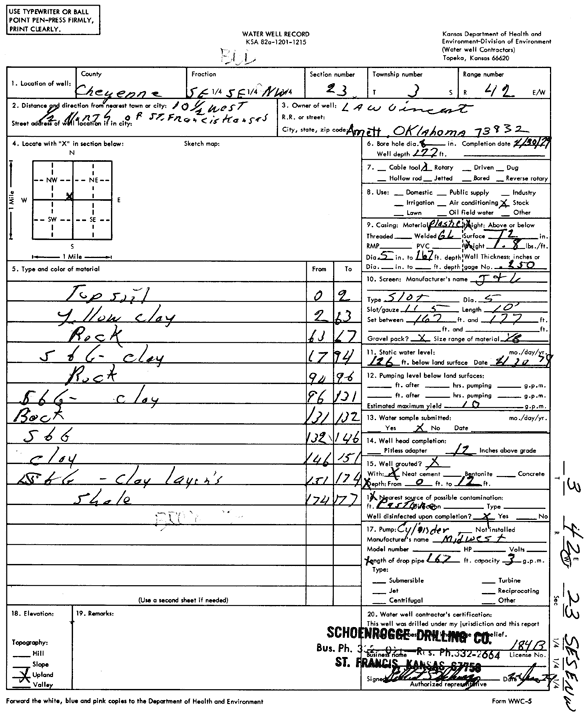 USE TYPEWRITER OR BALL
POINT PEN-PRESS FIRMLY,
PRINT CLEARLY.
WATER WELL RECORD
KSA 82a-1201-1215
Kansas Department of Health and
Environment-Division of Environment
(Water well Contractors)
Topeka, Kansas 66620
1. Location of well:
County
Cheyenne
Fraction
SE 1/4 SE 1/4 NW 1/4
Section number
23
Township number
T 3 S
Range number
R 42 E/W
2. Distance and direction from nearest town or city: 10 1/2 West
1/2 North of St. Francis Kansas
Street address of well location if in city:
3. Owner of well: LAW Vincent
R.R. or street:
City, state, zip code: Arnett, Oklahoma 73832
4. Locate with "X" in section below:
Sketch map:
N
NW NE
W X E
SW SE
S
1 Mile
1 Mile
6. Bore hole dia. 8 in. Completion date
Well depth 177 ft.
7. Cable tool X Rotary Driven Dug
Hollow rod Jetted Bored Reverse rotary
8. Use: Domestic Public supply Industry
Irrigation Air conditioning X Stock
Lawn Oil field water Other
9. Casing: Material Plastic Height: Above or below
Threaded Welded GL Surface 12 in.
RMP PVC Weight 1.8 lbs./ft.
Dia. 5 in. to 167 ft. depth Wall Thickness: inches or
Dia. in. to ft. depth gage No. .250
10. Screen: Manufacturer's name
Type Slot Dia. 5
Slot/gauze 11.5 Length 10'
Set between 167 ft. and 177 ft.
ft. and ft.
Gravel pack? X Size range of material 1/8
11. Static water level: mo./day/yr.
126 ft. below land surface Date
12. Pumping level below land surfaces:
ft. after hrs. pumping g.p.m.
ft. after hrs. pumping g.p.m.
Estimated maximum yield 10 g.p.m.
13. Water sample submitted: mo./day/yr.
Yes X No Date
14. Well head completion:
Pitless adapter 12 Inches above grade
15. Well grouted? X
With: X Neat cement Bentonite Concrete
Depth: From 0 ft. to 12 ft.
16. Nearest source of possible contamination:
ft. Pasture Direction Type
Well disinfected upon completion? X Yes No
17. Pump: Cylinder Not installed
Manufacturer's name Midwest
Model number HP Volts
Length of drop pipe 167 ft. capacity 3 g.p.m.
Type:
Submersible Turbine
Jet Reciprocating
Centrifugal Other
5. Type and color of material From To
Topsoil 0 2
Yellow clay 2 63
Rock 63 67
S&G - clay 67 94
Rock 94 96
S&G - clay 96 131
Rock 131 132
S&G 132 146
Clay 146 151
S&G - clay layers 151 174
Shale 174 177
(Use a second sheet if needed)
18. Elevation:
Topography:
Hill
Slope
X Upland
Valley
19. Remarks:
20. Water well contractor's certification:
This well was drilled under my jurisdiction and this report
SCHOENROGGE DRILLING CO.
Res. Ph. 332-2664
ST. FRANCIS, KANSAS 67756
Business name
184B
License No.
Signed
Date
Authorized representative
Forward the white, blue and pink copies to the Department of Health and Environment
Form WWC-5
T 3 R 42W Sec 23 SE SE NW
1/4 1/4 1/4